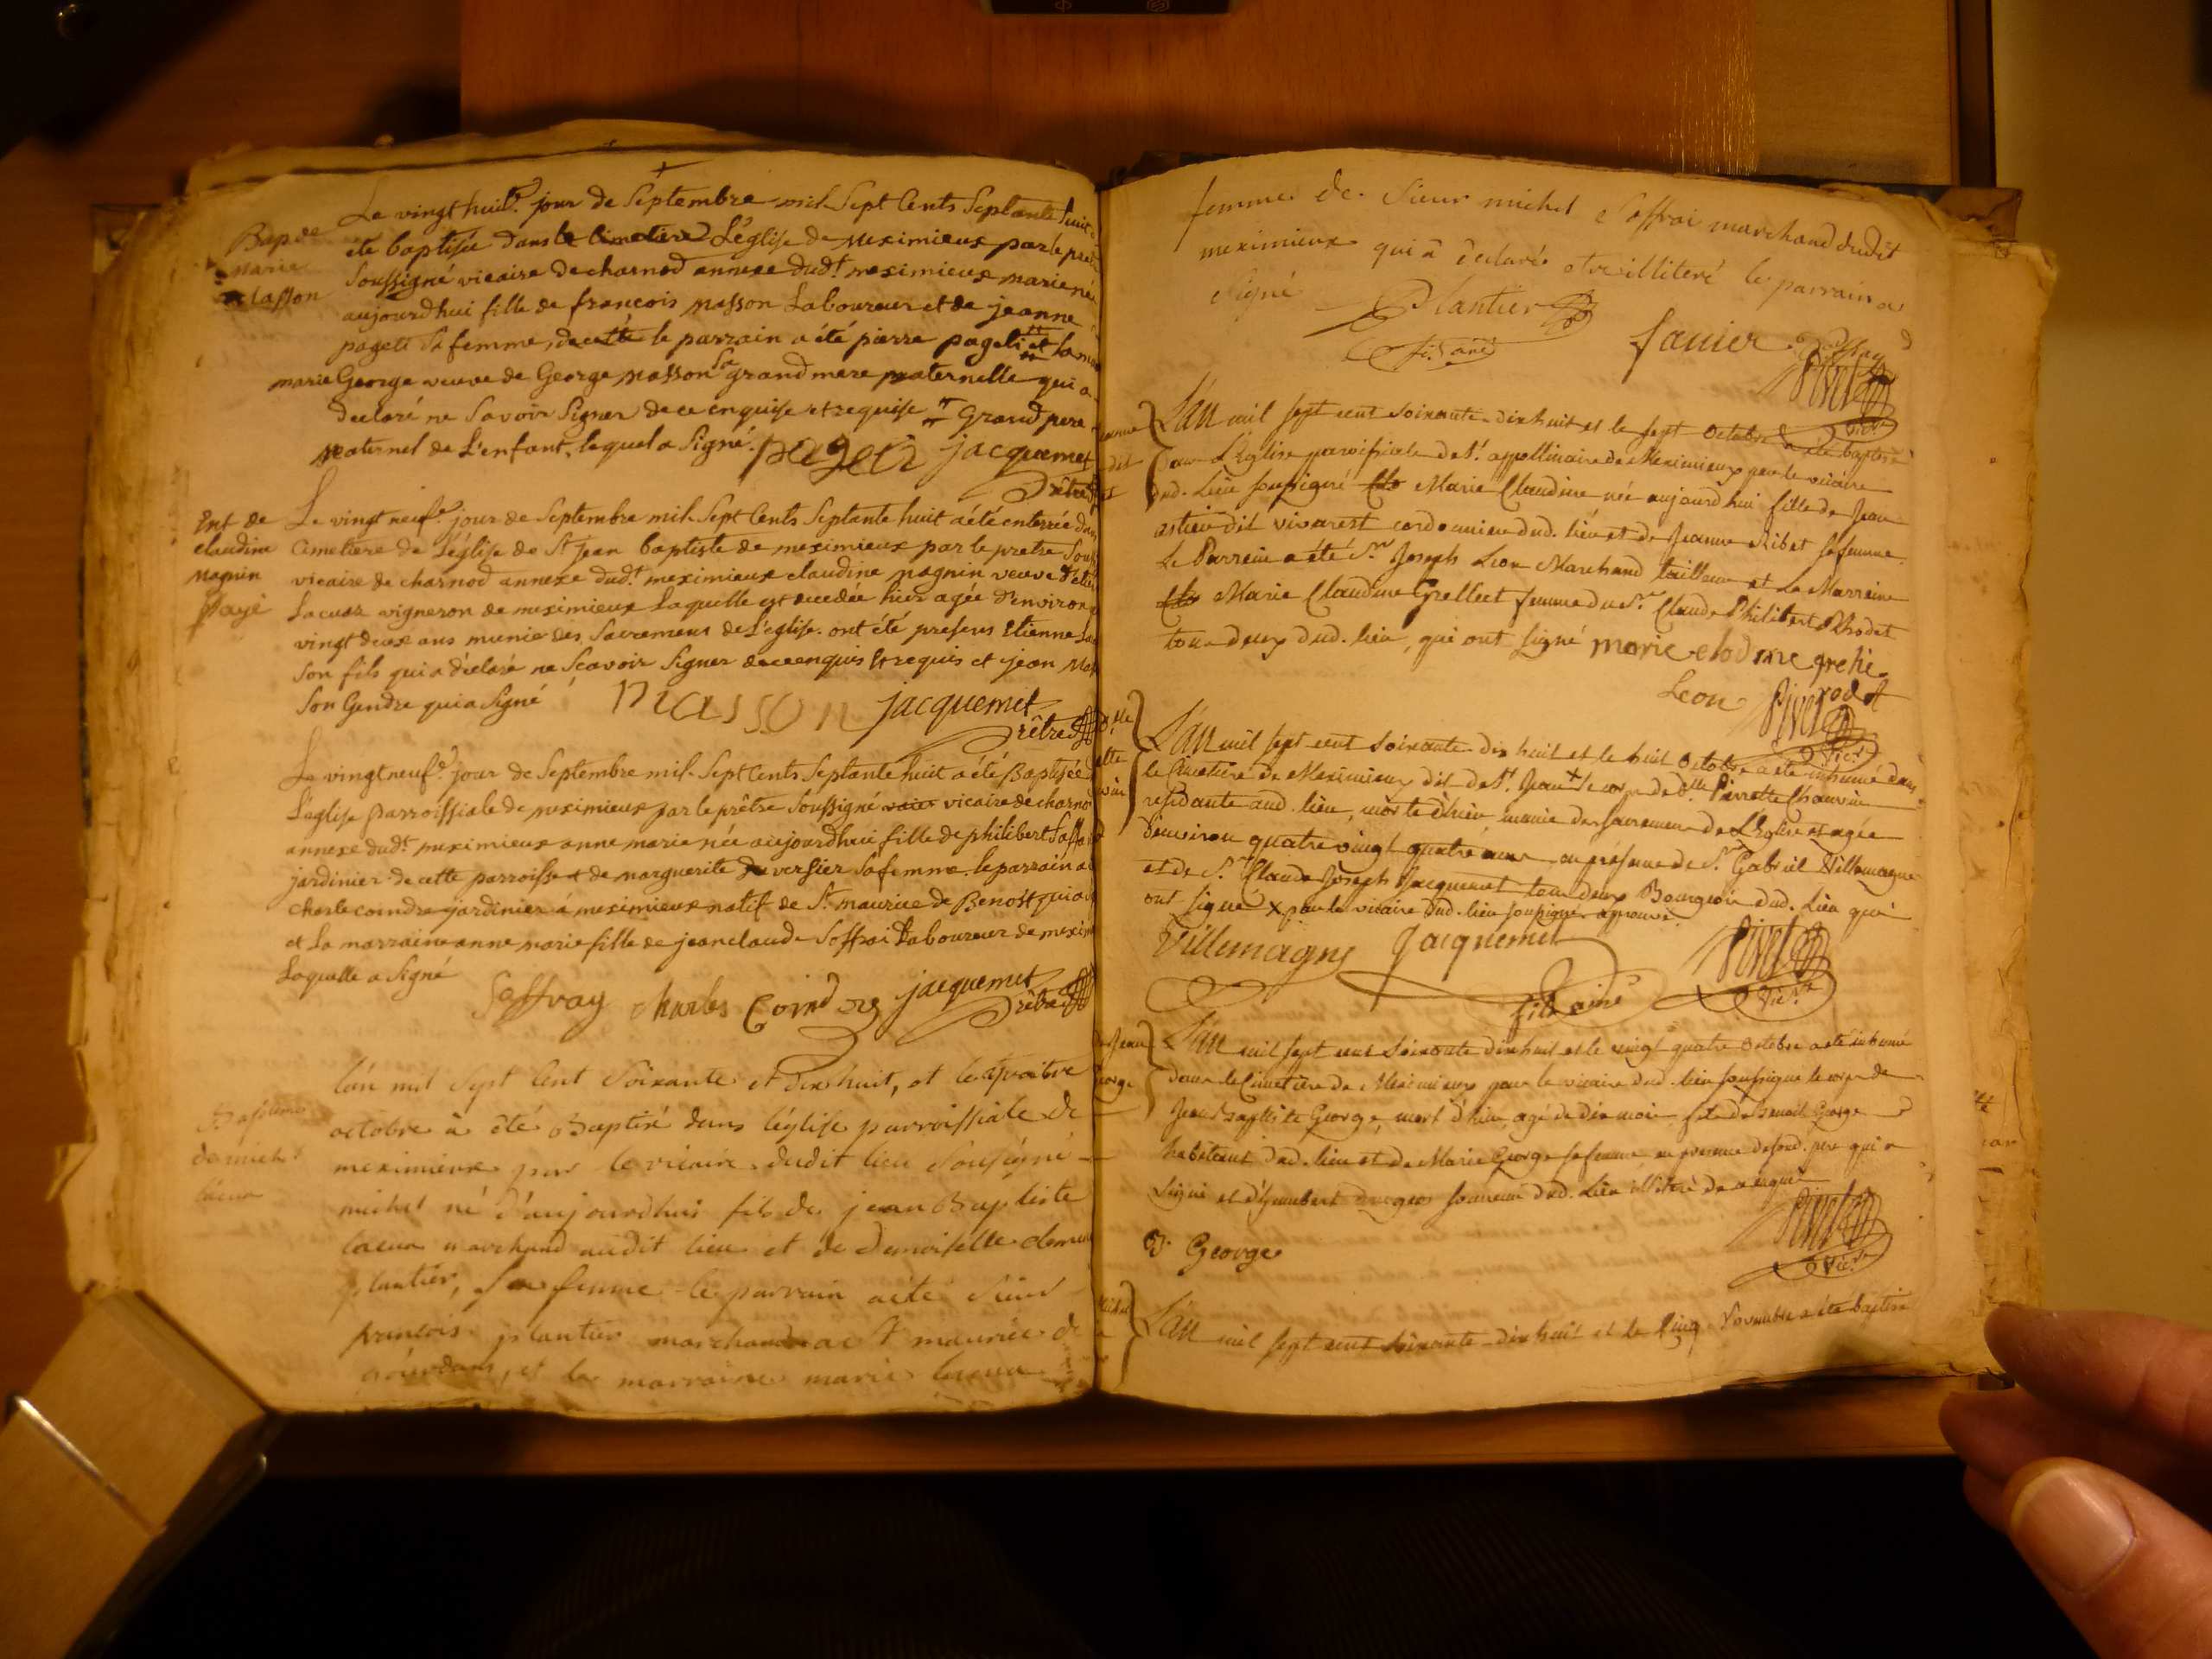 Bap de
marie
Masson
Le vingt huit.e jour de Septembre mil Sept Cents Septante huit a
été baptisée dans le cimetiere L'église de meximieux par le pretre
Soussigné vicaire de charnod annexe dud.t meximieux marie née
aujourdhui fille de francois masson Laboureur et de jeanne
pageti Sa femme, de cette le parrain a été pierre pageti et la
marie George veuve de George masson Sa grand mere maternelle qui a
declaré ne Savoir Signer de ce enquise et requise grand pere
maternel de L'enfant, lequel a Signé. pageti jacquemet
Prêtre
Ent de
claudine
magnin
payé
Le vingt neuf.e jour de Septembre mil Sept Cents Septante huit a été enterrée dans
Cimetiere de L'église de St jean baptiste de meximieux par le pretre
vicaire de charnod annexe dud.t meximieux claudine magnin veuve
Lacuas vigneron de meximieux Laquelle est decedée hier agée d'environ
vingt deux ans munie des Sacremens de L'eglise. ont été presens Etienne
Son fils qui a déclaré ne Scavoir Signer de ce enquis et requis et jean
Son Gendre qui a Signé masson jacquemet
Prêtre
Le vingt neuf.e jour de Septembre mil Sept Cents Septante huit a été Baptisée
L'église parroissiale de meximieux par le prêtre Soussigné vicaire de
annexe dud.t meximieux anne marie née aujourdhui fille de philibert
jardinier de cette parroisse et de marguerite du versier Sa femme. le parrain a
charle coindre jardinier à meximieux natif de St. maurice de Benost qui a
et La marraine anne marie fille de jean claude Soffrai Laboureur de
Laquelle a Signé
Soffray charles Coindre jacquemet
Prêtre
Baptême
de michel
lacua
l'an mil Sept Cent Soixante et dix huit, et le quatre
octobre à été Baptisé dans l'église parroissiale de
meximieux par le vicaire dudit lieu Soussigné
michel né d'aujourdhui fils de jean Baptiste
lacua marchand audit lieu et de Demoiselle
plantier, Sa femme le parrain a été Sieur
francois plantier marchand a St maurice de
gourdans, et la marraine marie lacua
femme de Sieur michel Soffrai marchand dudit
meximieux qui a declaré être illiteré le parrain a
Signé Plantier
fanier
Pivet
Vic.re
L'an mil sept cent soixante-dixhuit et le sept Octobre a été baptisé
dans L'Eglise paroissiale de St. appollinaire de Meximieux par le vicaire
dud. lieu soussigné Marie Claudine née aujourd'hui fille de Jean
astieu dit vivarest cordonnier dud. lieu et de Jeanne Ribet sa femme
Le Parrein a été S.r Joseph Leon Marchand tailleur et La Marreine
Marie Claudine Grellect femme du S.r Claude Philibert Rhodet
tous deux dud. lieu, qui ont signé marie clod ine grelie
Leon rodet
Pivet
Vic.re
L'an mil sept cent soixante-dix huit et le huit Octobre a été inhumé dans
le Cimetière de Meximieux dit de St. Jean + le corps de D.lle Pierrette Chauvin
residante aud. lieu, morte d'hier, munie des sacremens de L'Eglise et agée
d'environ quatre vingt quatre ans en présence de S.r Gabriel Villemagne
et de S.r Claude Joseph Jacquemet tous deux Bourgeois dud. Lieu qui
ont signé x par le vicaire dud. lieu soussigné approuvé
Villemagne Jacquemet
fils ainé
Pivet
Vic.re
L'an mil sept cent soixante dixhuit et le vingt quatre Octobre a été inhumé
dans le Cimetière de Meximieux par le vicaire dud. lieu soussigné le corps de
Jean Baptiste George, mort d'hier, agé de dix mois, fils de Benoît George
habitant dud. lieu et de Marie George sa femme en presence de sond. pere qui a
signé et d'humbert sonneur dud. Lieu illiteré de ce enquis
B. George
Pivet
Vic.re
L'an mil sept cent soixante-dix huit et le Cinq Novembre a été baptisé